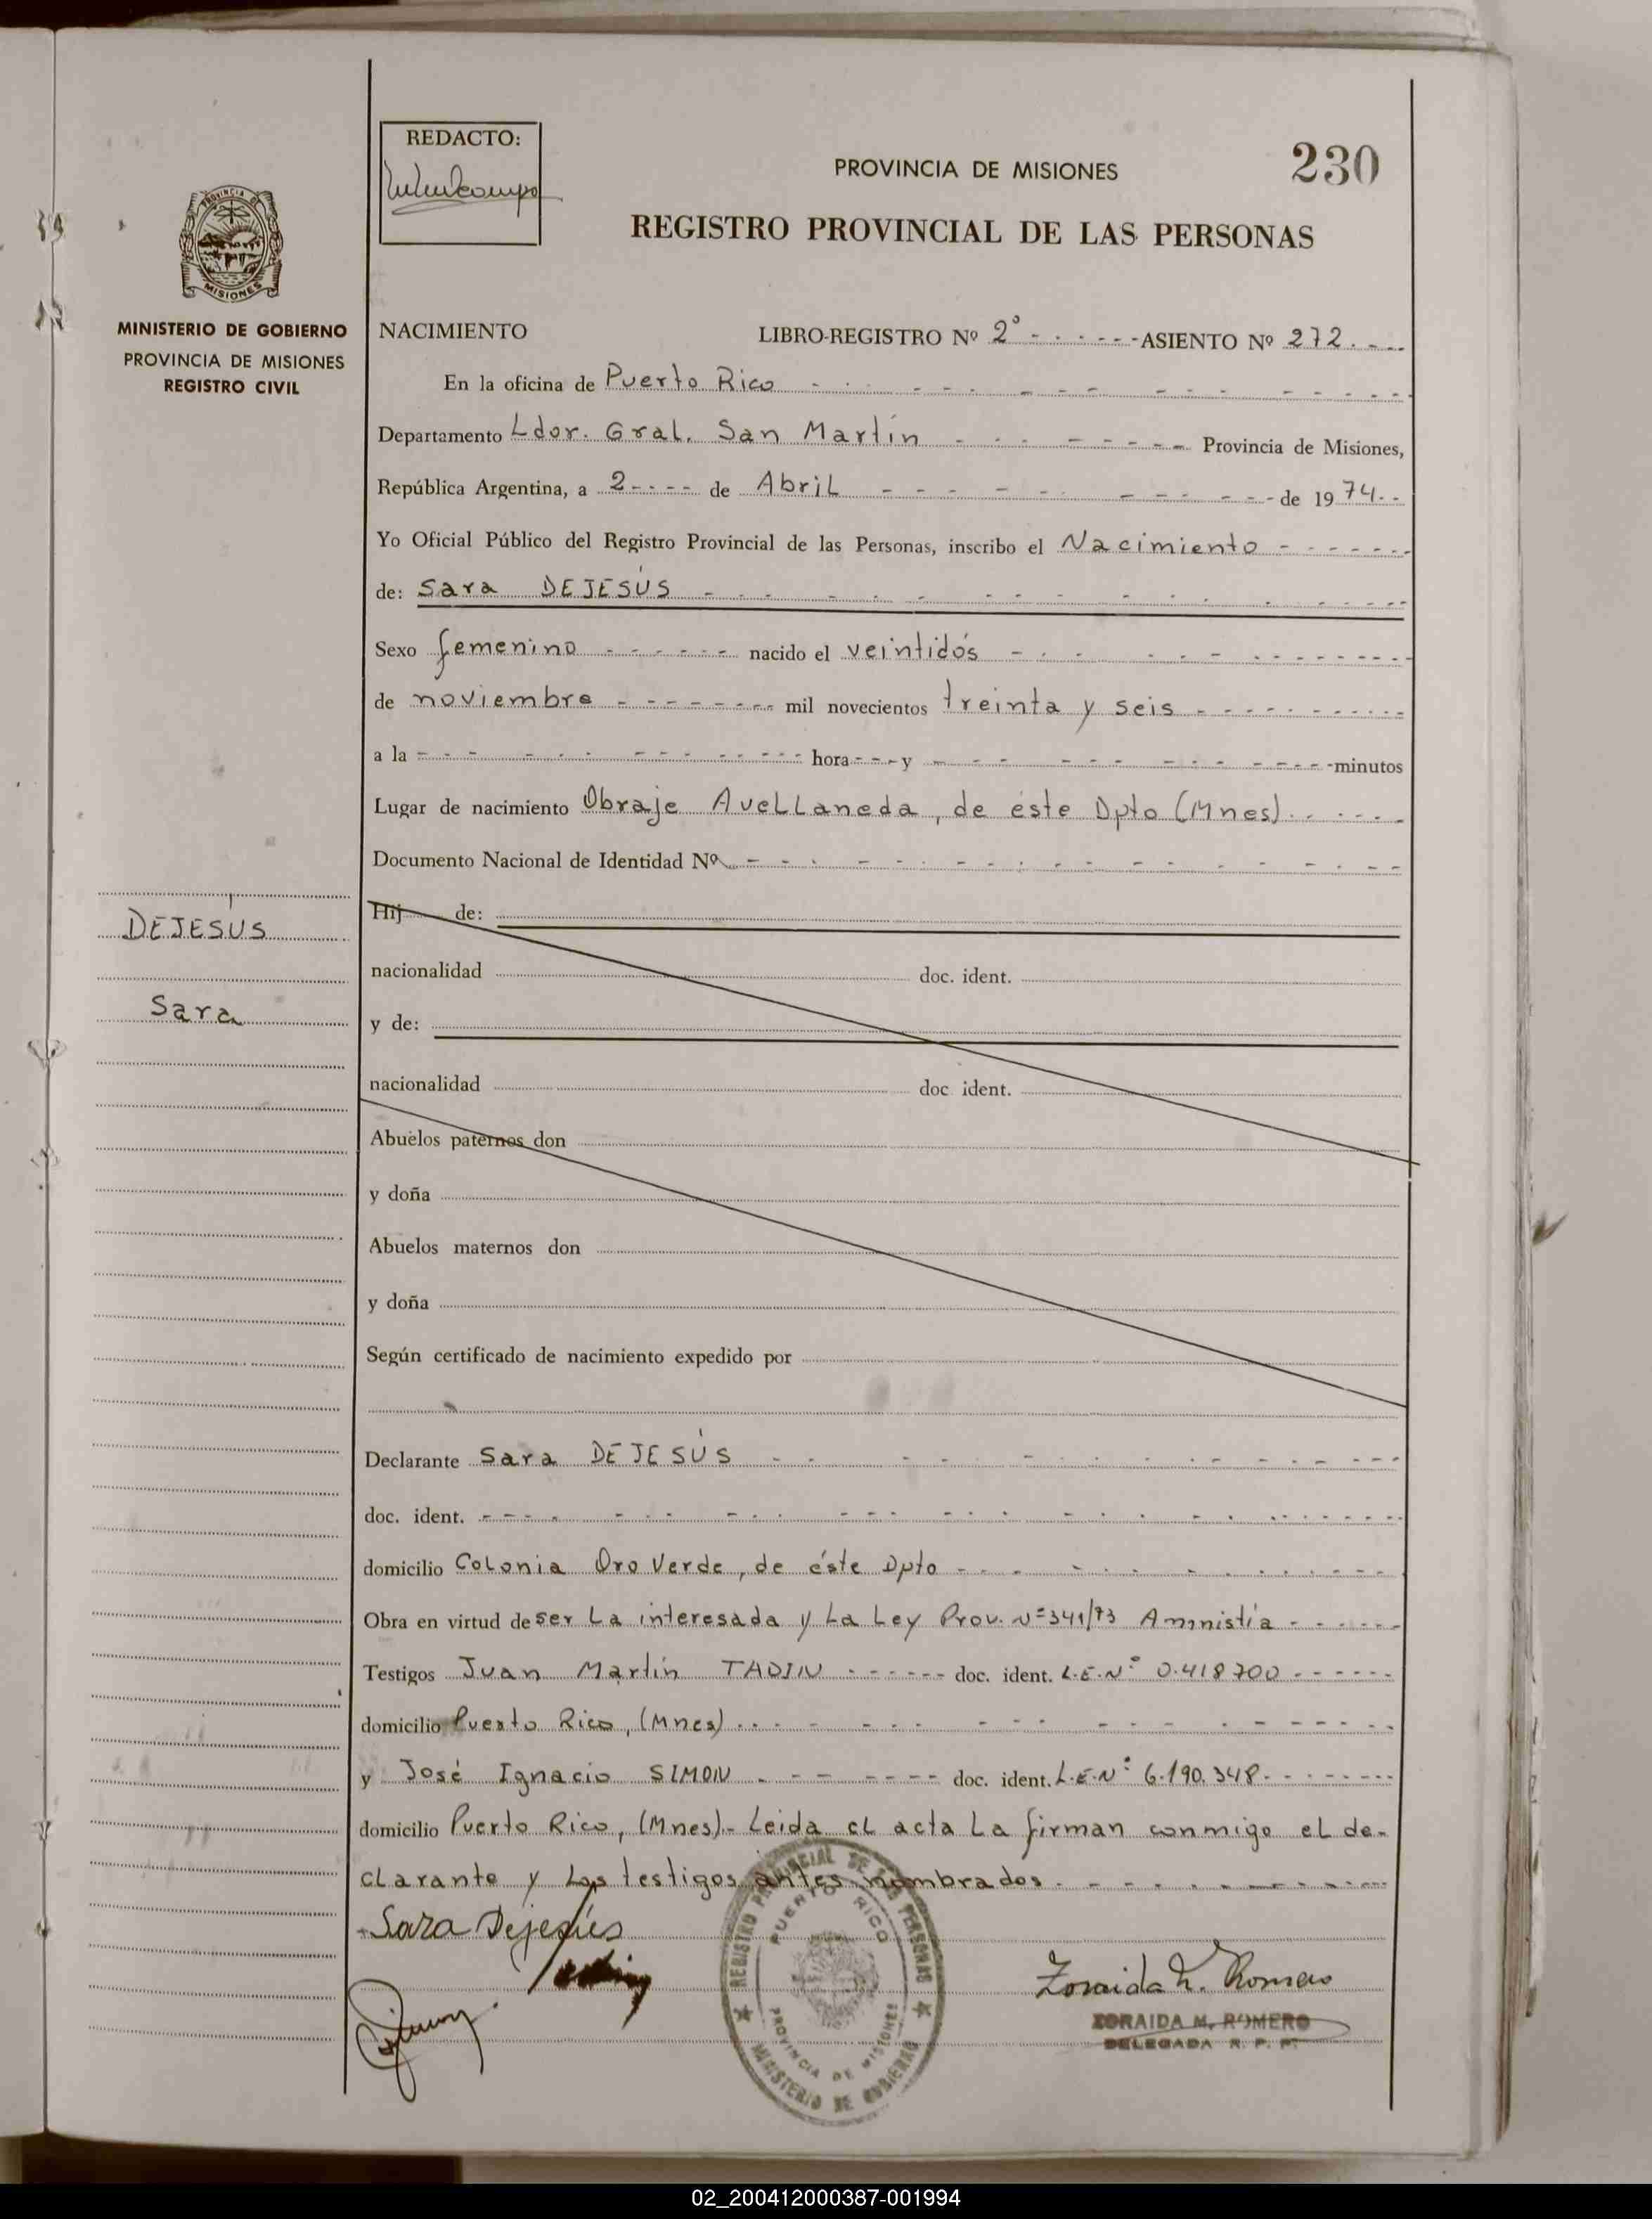 230
REDACTO:
PROVINCIA DE MISIONES
REGISTRO PROVINCIAL DE LAS PERSONAS
PROVINCIA DE
MISIONES
MINISTERIO DE GOBIERNO
PROVINCIA DE MISIONES
REGISTRO CIVIL
NACIMIENTO LIBRO-REGISTRO Nº 2° ASIENTO Nº 272
En la oficina de Puerto Rico
Departamento Ldor. Gral. San Martín Provincia de Misiones,
República Argentina, a 2 de Abril de 1974
Yo Oficial Público del Registro Provincial de las Personas, inscribo el Nacimiento
de: Sara DEJESÚS
Sexo femenino nacido el veintidós
de noviembre mil novecientos treinta y seis
a la hora y minutos
Lugar de nacimiento Obraje Avellaneda, de éste Dpto (Mnes)
Documento Nacional de Identidad Nº
DEJESUS
Sara
Hij de:
nacionalidad doc. ident.
y de:
nacionalidad doc ident.
Abuelos paternos don
y doña
Abuelos maternos don
y doña
Según certificado de nacimiento expedido por
Declarante Sara DEJESÚS
doc. ident.
domicilio Colonia Oro Verde, de éste Dpto
Obra en virtud de ser la interesada y la Ley Prov. Nº 341/73 Amnistía
Testigos Juan Martín TADIN doc. ident. L.E.N° 0.418700
domicilio Puerto Rico, (Mnes)
y José Ignacio SIMON doc. ident. L.E.N° 6.190.348
domicilio Puerto Rico, (Mnes).- Leida el acta la firman conmigo el de-
clarante y los testigos antes nombrados
Sara Dejesús
REGISTRO PROVINCIAL DE LAS PERSONAS
PUERTO RICO
PROVINCIA DE MISIONES
MINISTERIO DE GOBIERNO
Zoraida M. Romero
ZORAIDA M. ROMERO
DELEGADA R. P. P.
02_200412000387-001994